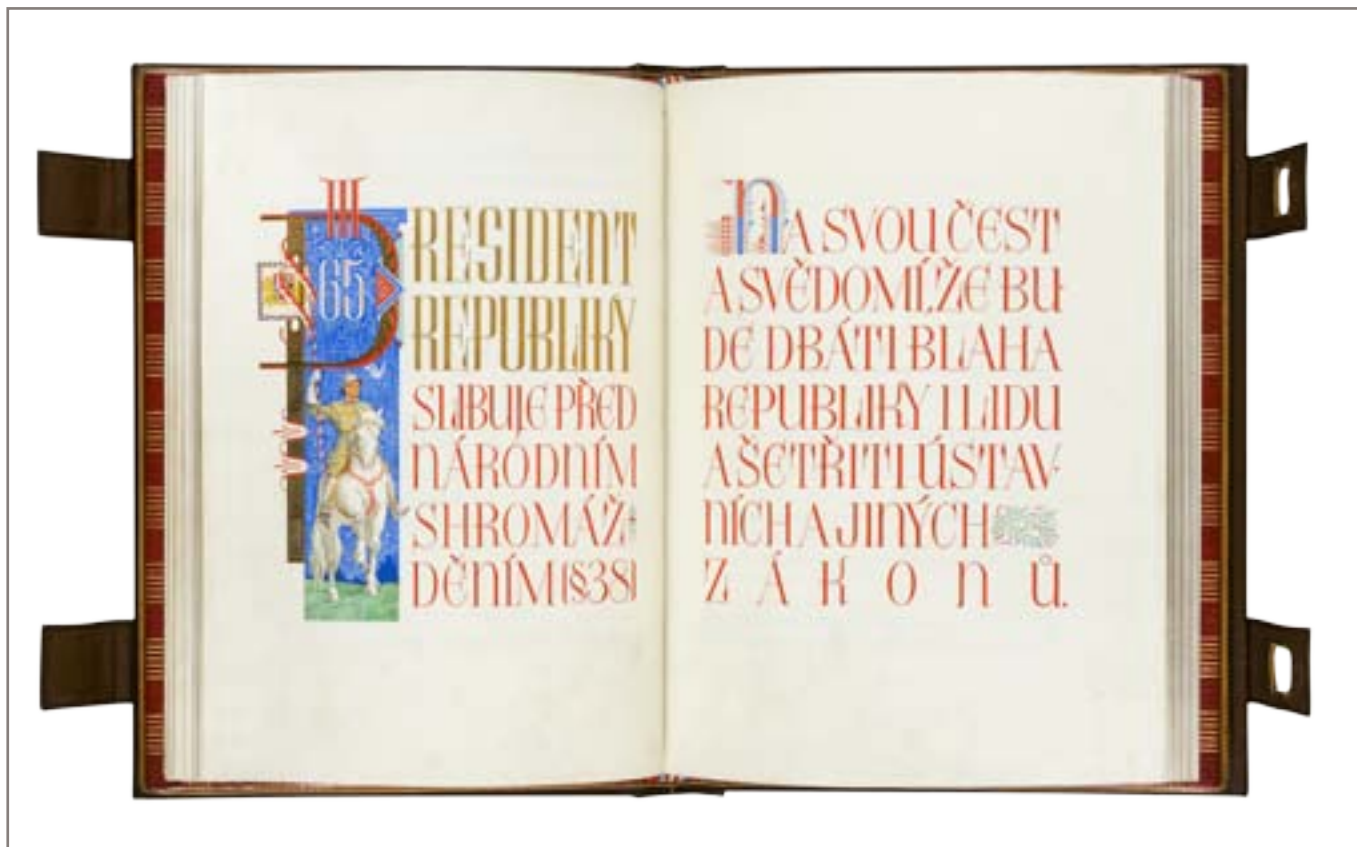 65
PRESIDENT
REPUBLIKY
SLIBUJE PŘED
NÁRODNÍM
SHROMÁŽ-
DĚNÍM (§38)
NA SVOU ČEST
A SVĚDOMÍ, ŽE BU-
DE DBÁTI BLAHA
REPUBLIKY I LIDU
A ŠETŘITI ÚSTAV-
NÍCH A JINÝCH
ZÁKONŮ.